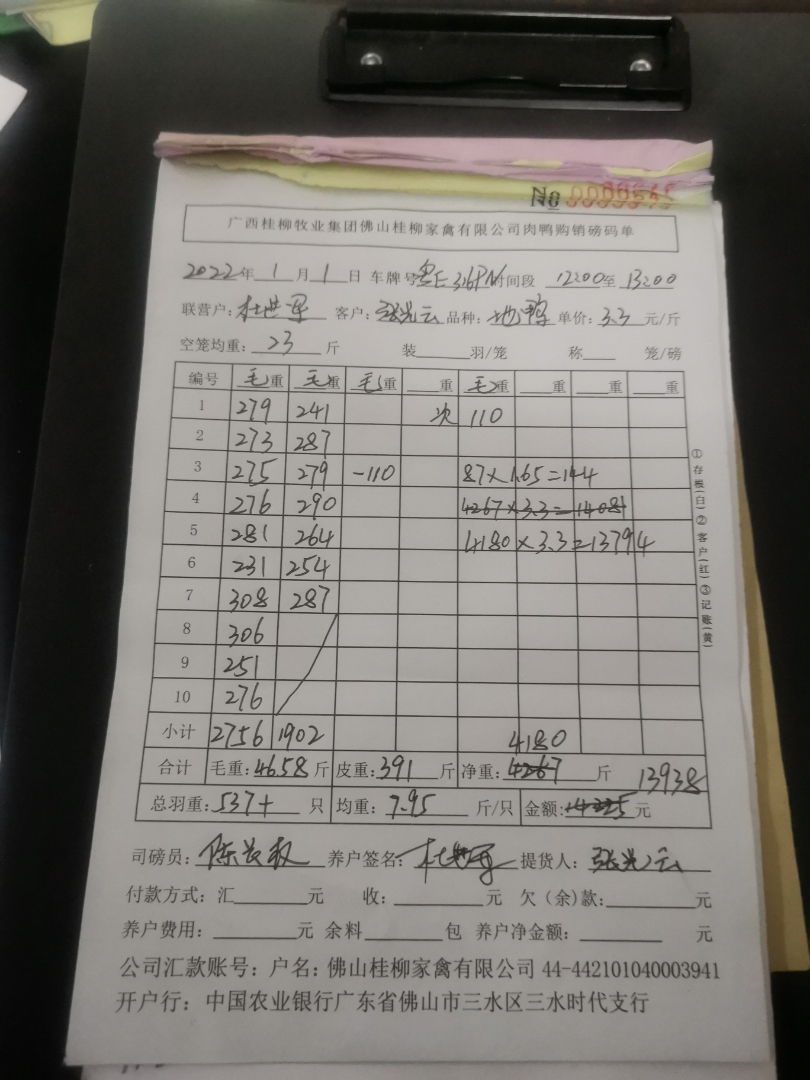 No
广西桂柳牧业集团佛山桂柳家禽有限公司肉鸭购销磅码单
2022年 1月 1日 车牌号 时间段 12:00至 13:00
联营户: 杜世军 客户: 张光云 品种: 地鸭 单价: 3.3 元/斤
空笼均重: 23 斤 装 羽/笼 称 笼/磅
编号 毛重 毛重 毛重 重 毛重 重 重 重
1 279 241 次 110
2 273 287
3 275 279 -110 87×1.65=144
4 276 290 4267×3.3=14081
5 281 264 4180×3.3=13794
6 231 254
7 308 287
8 306
9 251
10 276
小计 2756 1902 4180
合计 毛重: 4658 斤 皮重: 391 斤 净重: 4267 斤 13938
总羽重: 537+ 只 均重: 7.95 斤/只 金额: 元
司磅员: 养户签名: 杜世军 提货人: 张光云
付款方式: 汇 元 收: 元 欠(余)款: 元
养户费用: 元 余料 包 养户净金额: 元
公司汇款账号: 户名: 佛山桂柳家禽有限公司 44-442101040003941
开户行: 中国农业银行广东省佛山市三水区三水时代支行
①存根(白)②客户(红)③记账(黄)